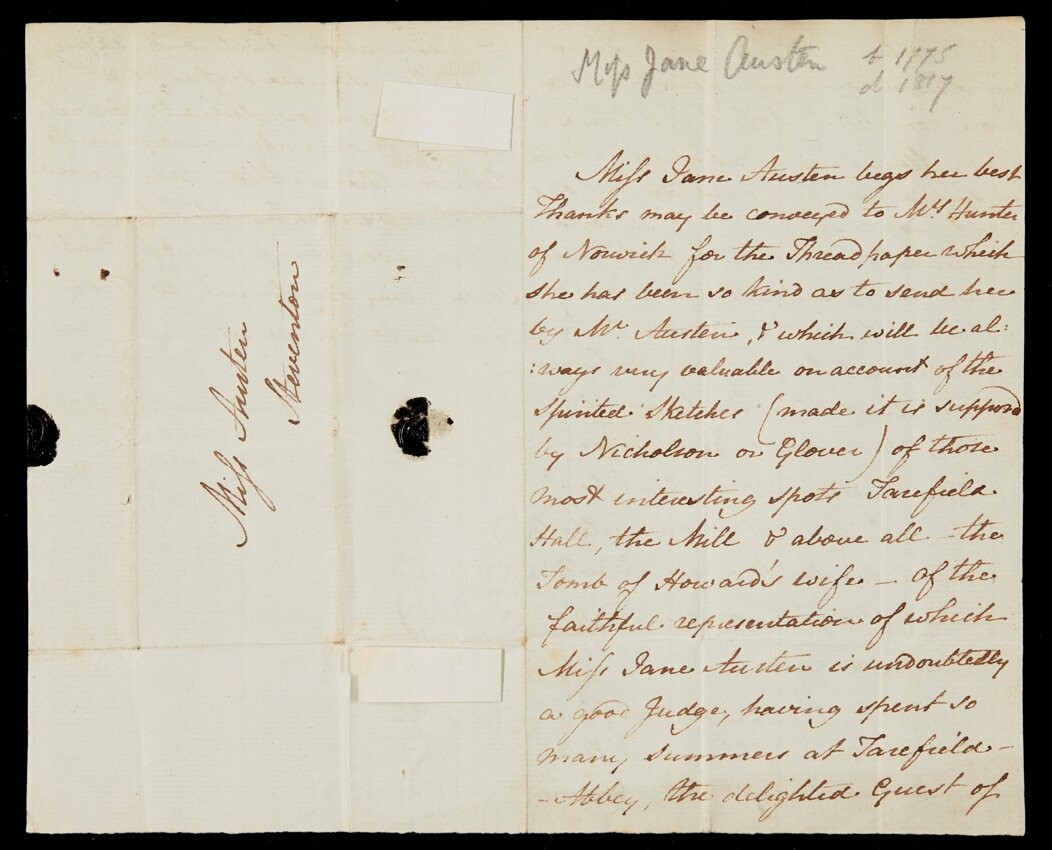 Miss Austen
Steventon
Miss Jane Austen b 1775
d 1817
Miss Jane Austen begs her best
Thanks may be conveyed to Mrs Hunter
of Norwich for the Threadpaper which
she has been so kind as to send her
by Mr. Austen, & which will be al:
:ways very valuable on account of the
spirited sketches (made it is supposed
by Nicholson or Glover) of those
most interesting spots Tarefield
Hall, the Mill & above all - the
Tomb of Howard's wife - of the
faithful representation of which
Miss Jane Austen is undoubtedly
a good Judge, having spent so
many summers at Tarefield-
-Abbey, the delighted Guest of